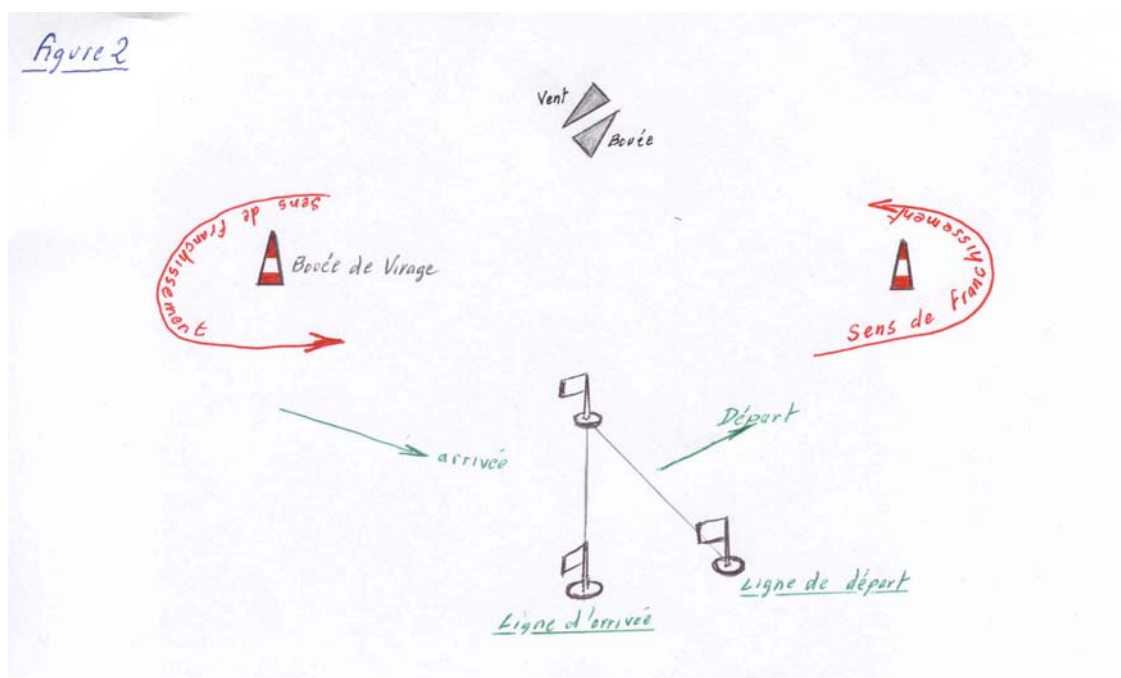 Figure 2
Vent
Bouée
Sens de franchissement
Bouée de Virage
Sens de Franchissement
arrivée
Départ
Ligne de départ
Ligne d'arrivée